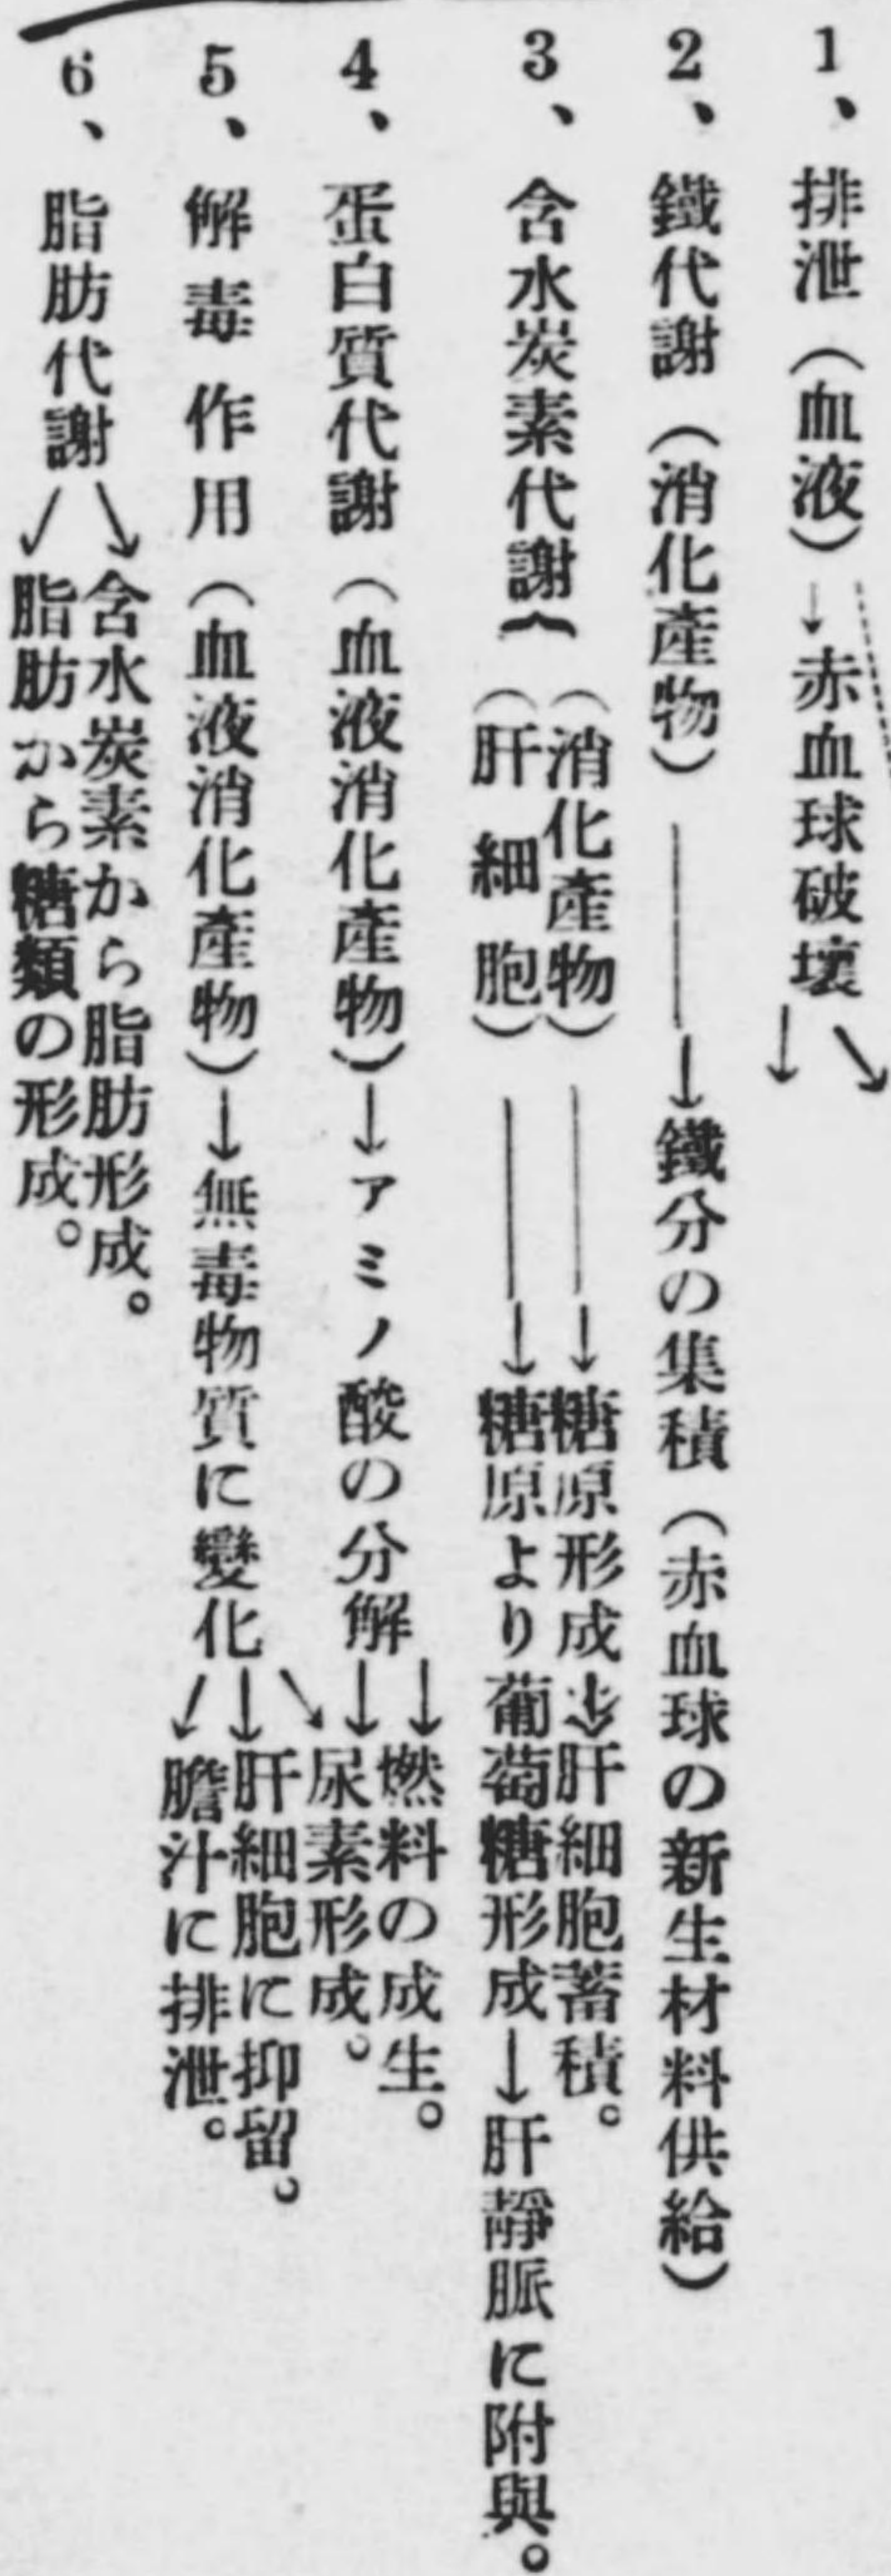 1、排泄（血液）→赤血球破壞
2、鐵代謝（消化產物）――→鐵分の集積（赤血球の新生材料供給）
3、含水炭素代謝{
（消化產物）――→糖原形成→肝細胞蓄積。
（肝細胞）――→糖原より葡萄糖形成→肝靜脈に附與。
4、蛋白質代謝（血液消化產物）→アミノ酸の分解
→燃料の成生。
→尿素形成。
5、解毒作用（血液消化產物）→無毒物質に變化
→肝細胞に抑留。
→膽汁に排泄。
6、脂肪代謝
→含水炭素から脂肪形成。
→脂肪から糖類の形成。